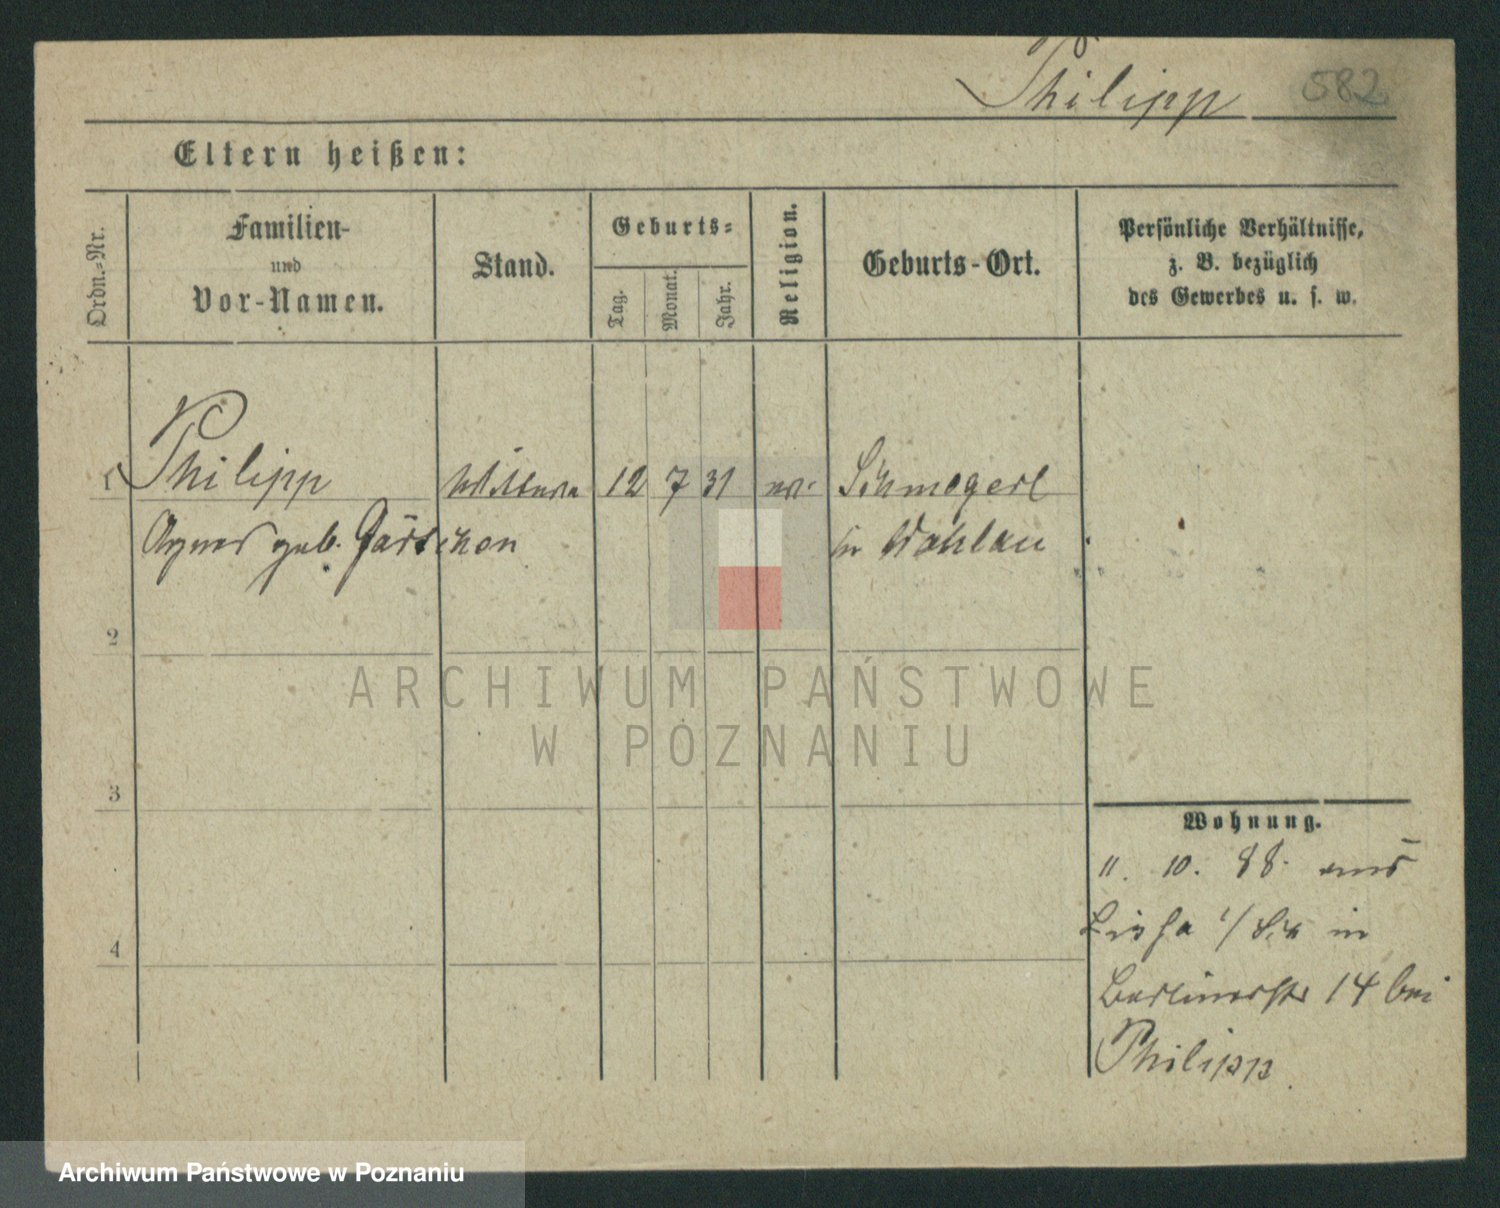 Philipp 582
Eltern heißen:
Ordn.-Nr.
Familien-
und
Vor-Namen.
Stand.
Geburts-
Tag.
Monat.
Jahr.
Religion.
Geburts-Ort.
Persönliche Verhältnisse,
z. B. bezüglich
des Gewerbes u. s. w.
1 Philipp Wittwe 12 7 31 ev. Schmogerl
Agnes geb. kr. Wohlau
2
3
4
Wohnung.
11. 10. 88. aus
Lissa in
Berlinerstr 14 bei
Philipp
ARCHIWUM PAŃSTWOWE
W POZNANIU
Archiwum Państwowe w Poznaniu